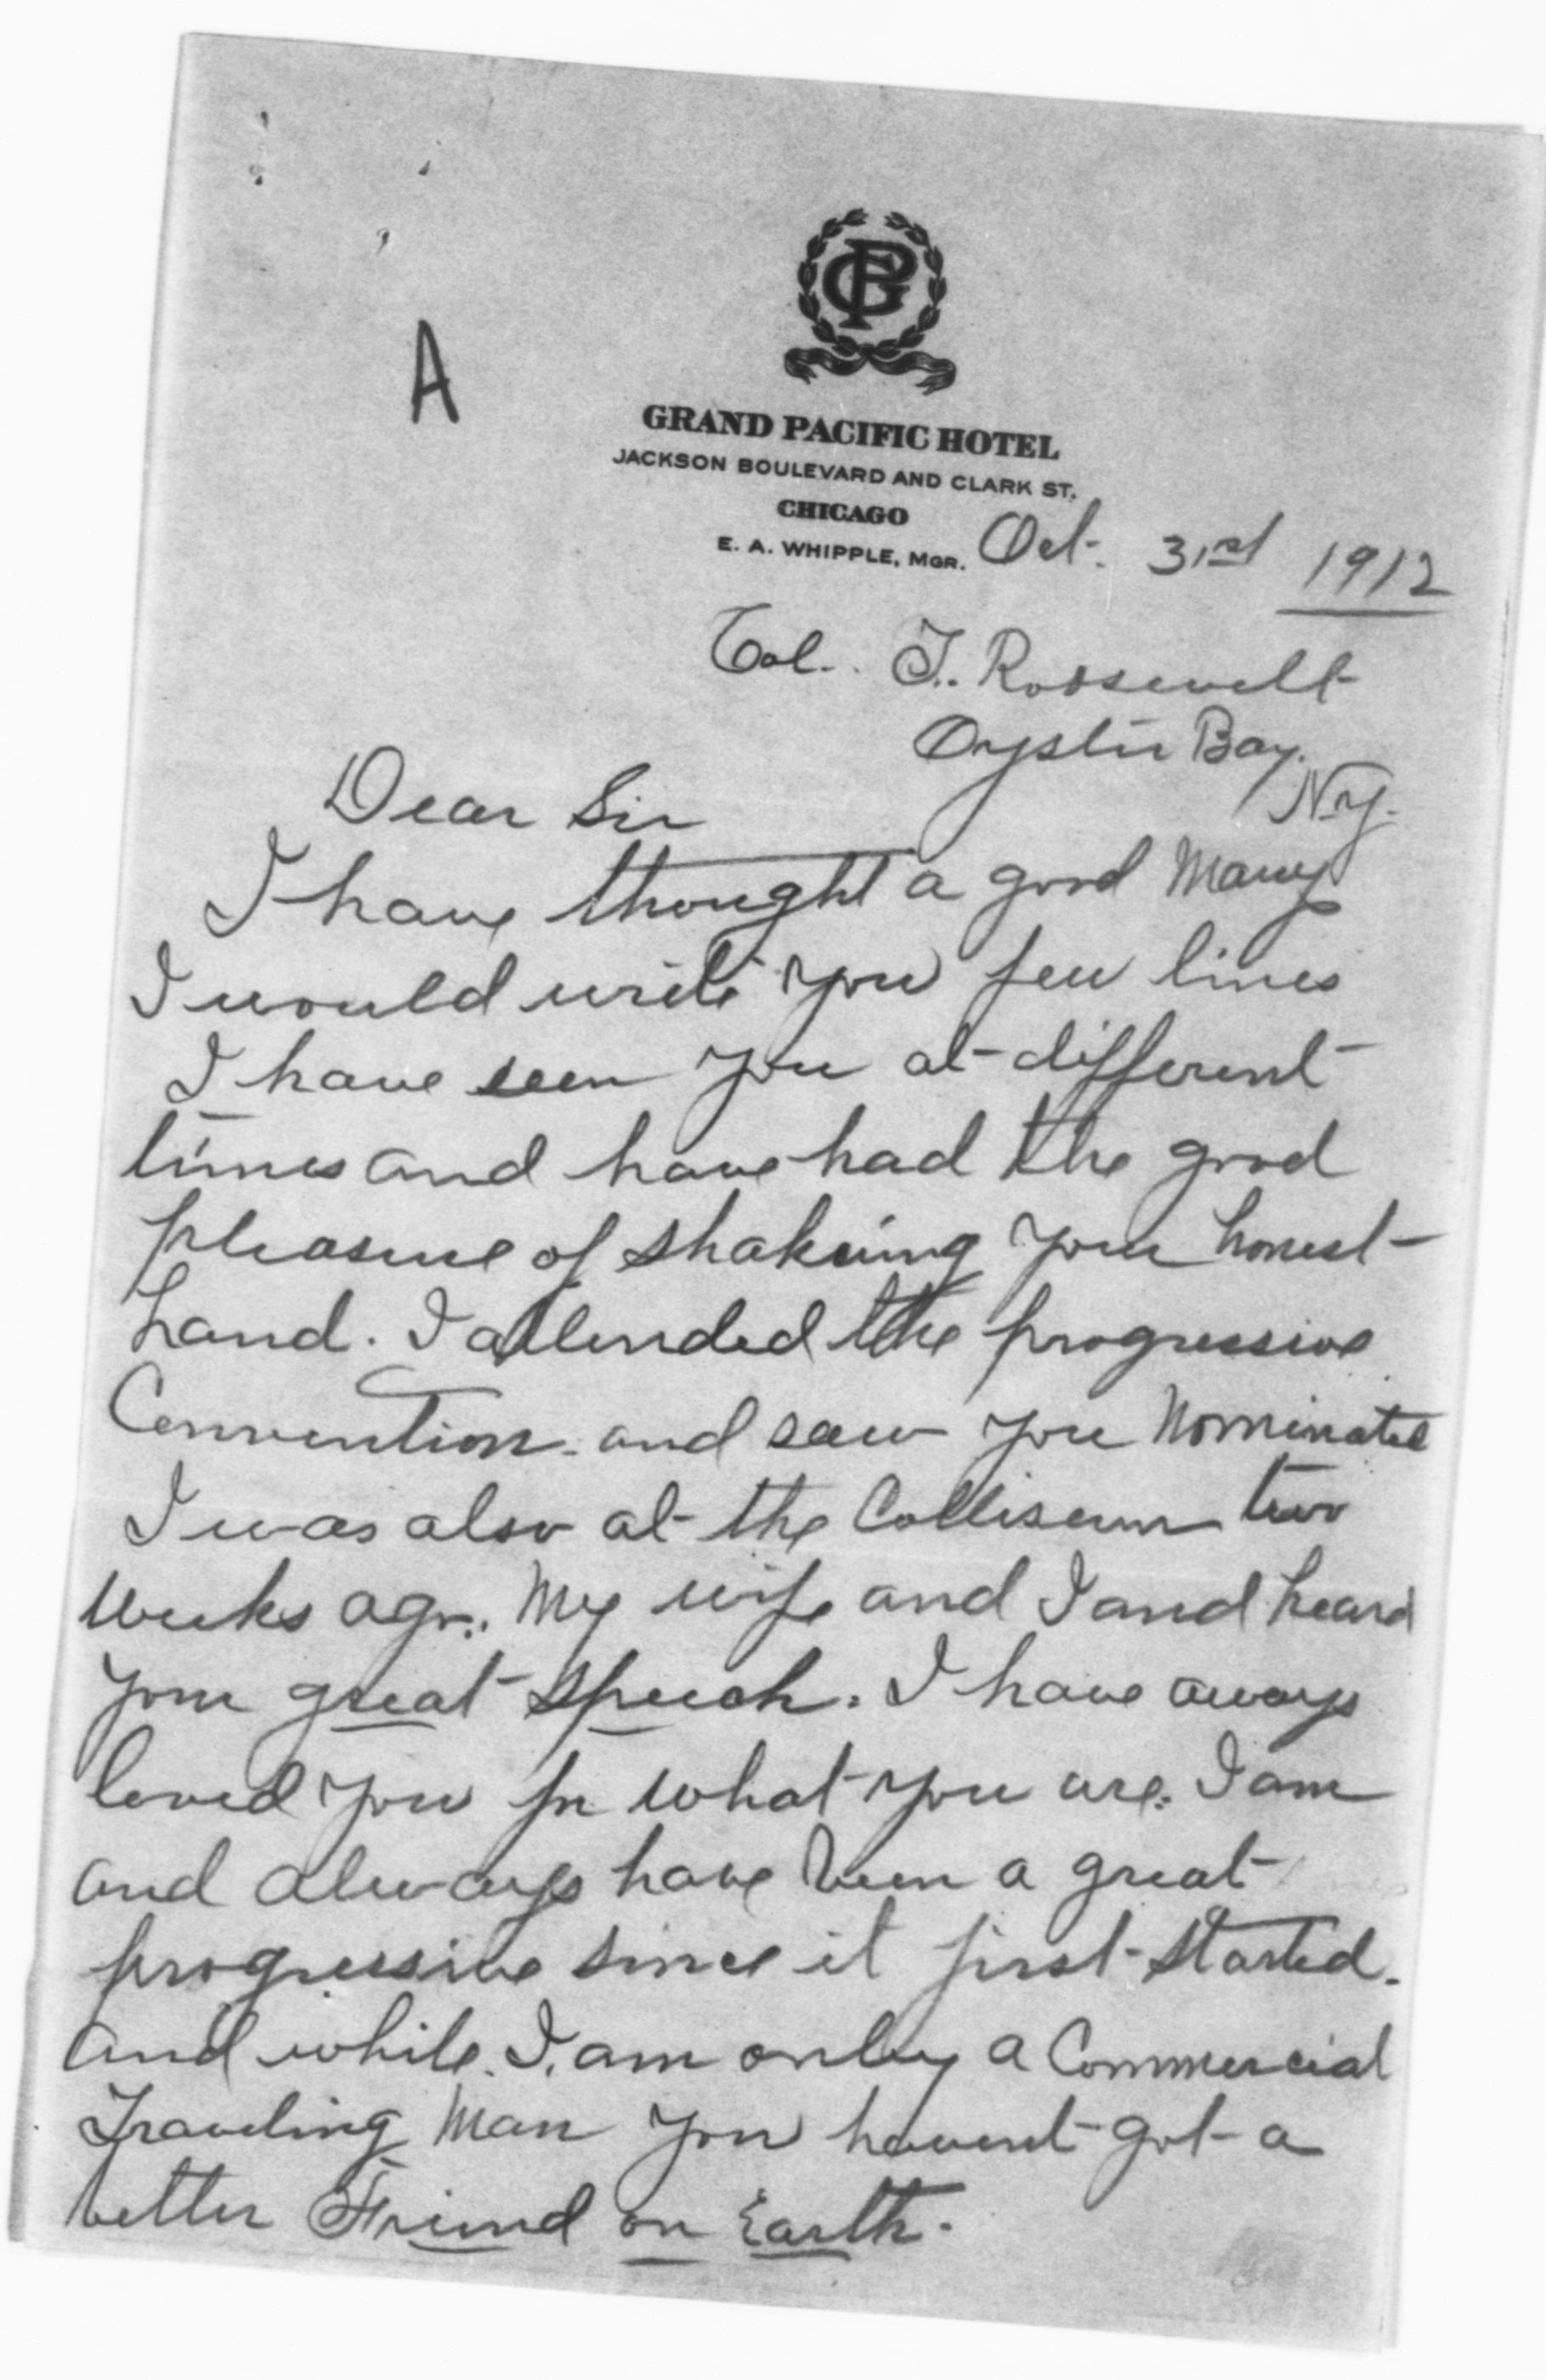 GP
A
GRAND PACIFIC HOTEL
JACKSON BOULEVARD AND CLARK ST.
CHICAGO
E. A. WHIPPLE, MGR. Oct. 31st 1912
Col. T. Roosevelt
Oyster Bay.
N.Y.
Dear Sir
I have thought a good Many
I would write you few lines
I have seen you at different
times and have had the good
pleasure of shakeing your honest
hand. I attended the progressive
Convention and saw you Nominated
I was also at the Colliseum two
weeks ago. My wife and I and heard
your great speech. I have aways
loved you for what you are. I am
and always have been a great
progressive since it first started.
and while I am only a Commercial
Traveling Man you havent got a
better Friend on Earth.